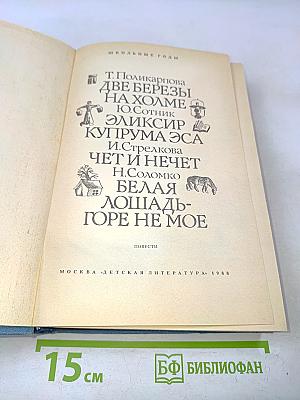 ШКОЛЬНЫЕ ГОДЫ
Т. Поликарпова
ДВЕ БЕРЕЗЫ
НА ХОЛМЕ
Ю. Сотник
ЭЛИКСИР
КУПРУМА ЭСА
И. Стрелкова
ЧЕТ И НЕЧЕТ
Н. Соломко
БЕЛАЯ
ЛОШАДЬ-
ГОРЕ НЕ МОЕ
ПОВЕСТИ
МОСКВА «ДЕТСКАЯ ЛИТЕРАТУРА» 1988
15 см
БФ БИБЛИОФАН